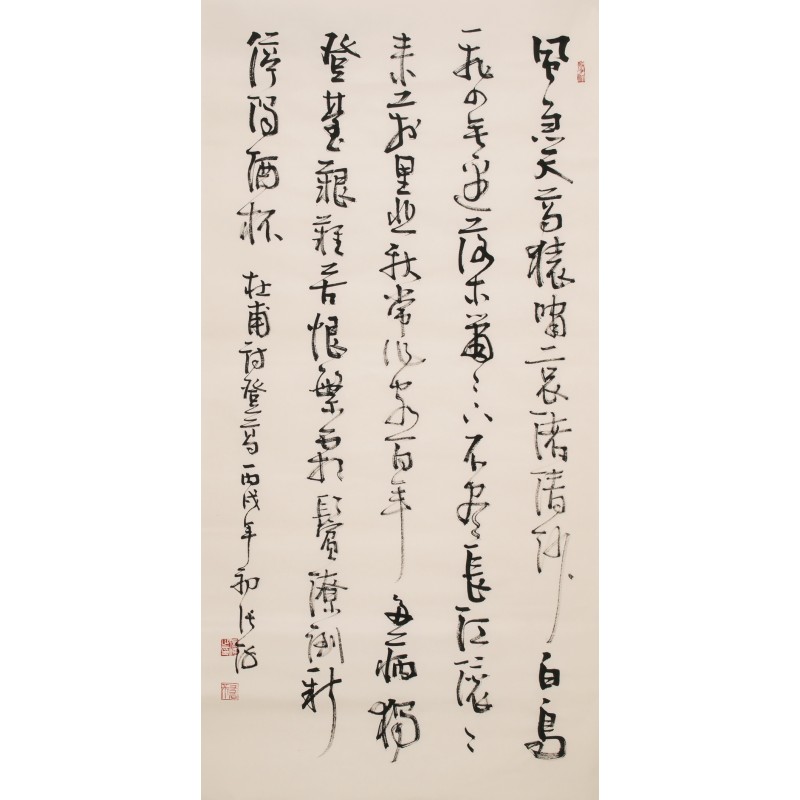 風急天高猿嘯哀渚清沙白鳥
飛回無邊落木蕭々下不盡長江滾々
來萬里悲秋常作客百年多病獨
登臺艱難苦恨繁霜鬢潦倒新
停濁酒杯 杜甫詩登高 丙戌年初